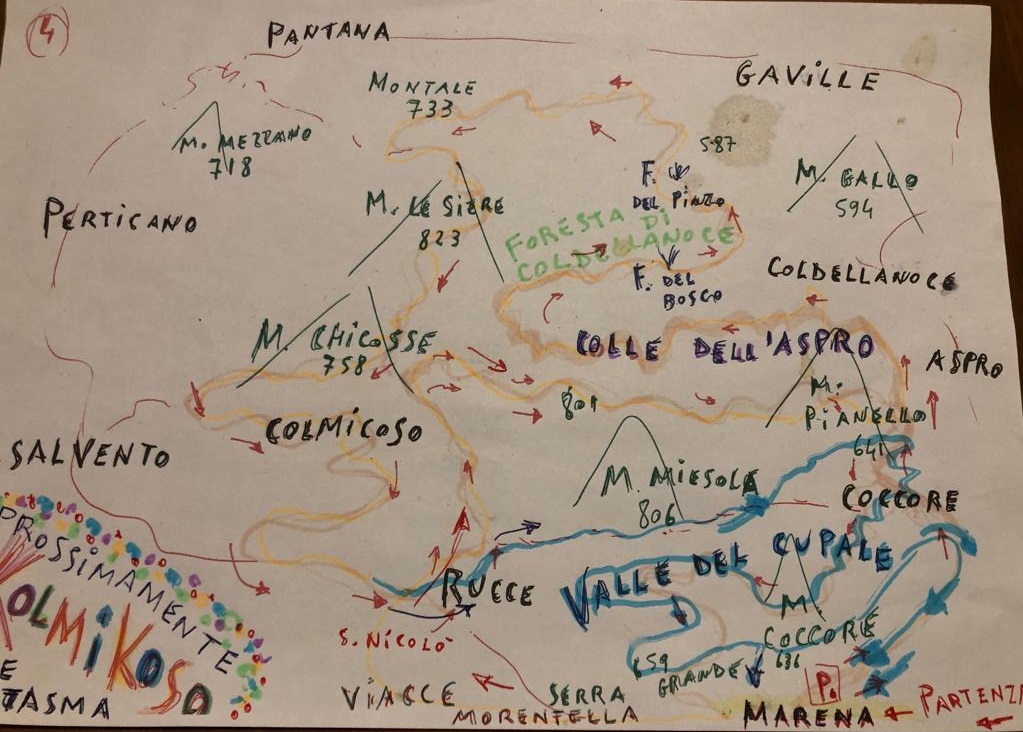 4
PANTANA
GAVILLE
MONTALE
733
M. MEZZANO
718
587
F.
DEL PINZO
M. GALLO
594
PERTICANO
M. LE SIERE
823
FORESTA DI
COLDELLANOCE
F. DEL
BOSCO
COLDELLANOCE
M. CHICOSSE
758
COLLE DELL'ASPRO
ASPRO
801
M.
PIANELLO
641
COLMICOSO
SALVENTO
M. MIESOLA
806
COCCORE
PROSSIMAMENTE
KOLMIKOSO
E
TASMA
RUCCE
VALLE DEL CUPALE
M.
COCCORE
686
S. NICOLO'
659
GRANDE
VIACCE
SERRA
MORENTELLA
P.
MARENA
PARTENZ